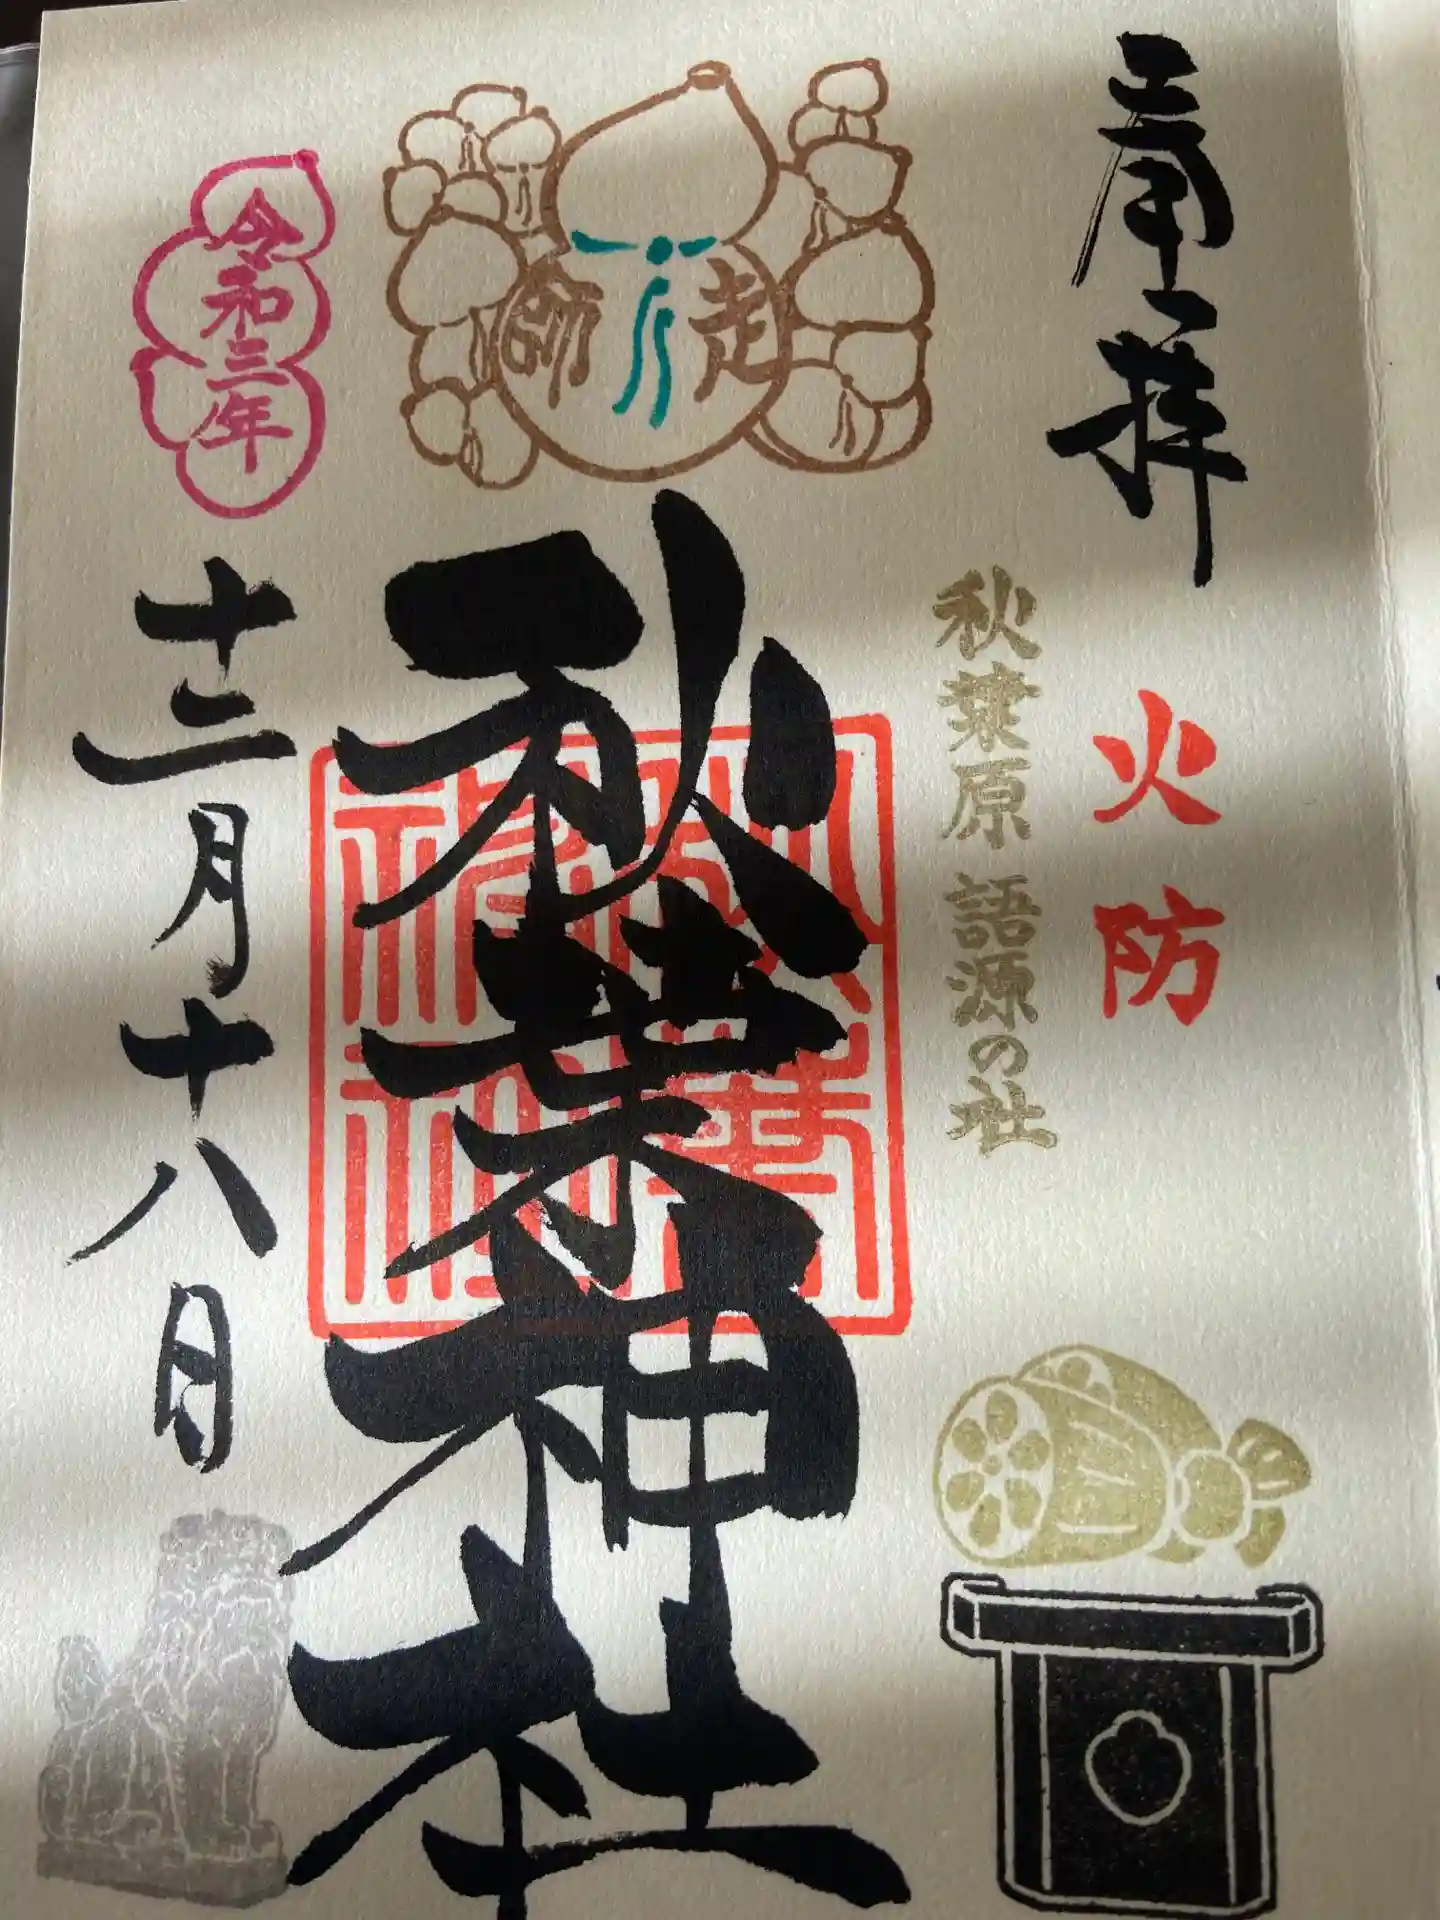 奉拝
火防
秋葉原 語源の社
走
師
秋葉神社
秋葉神社
令和三年
十二月十八日